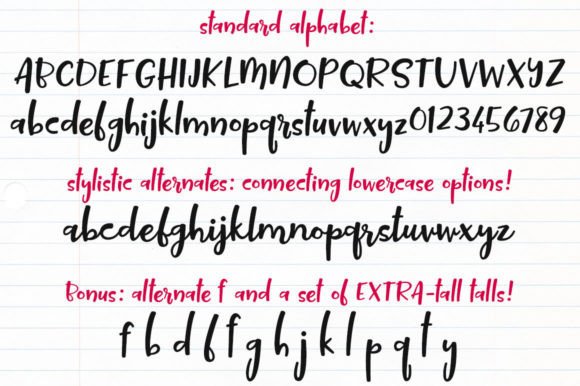 standard alphabet:
ABCDEFGHIJKLMNOPQRSTUVWXYZ
abcdefghijklmnopqrstuvwxyz0123456789
stylistic alternates: connecting lowercase options!
abcdefghijklmnopqrstuvwxyz
Bonus: alternate f and a set of EXTRA-tall talls!
f b d f f g h j k l p q t y